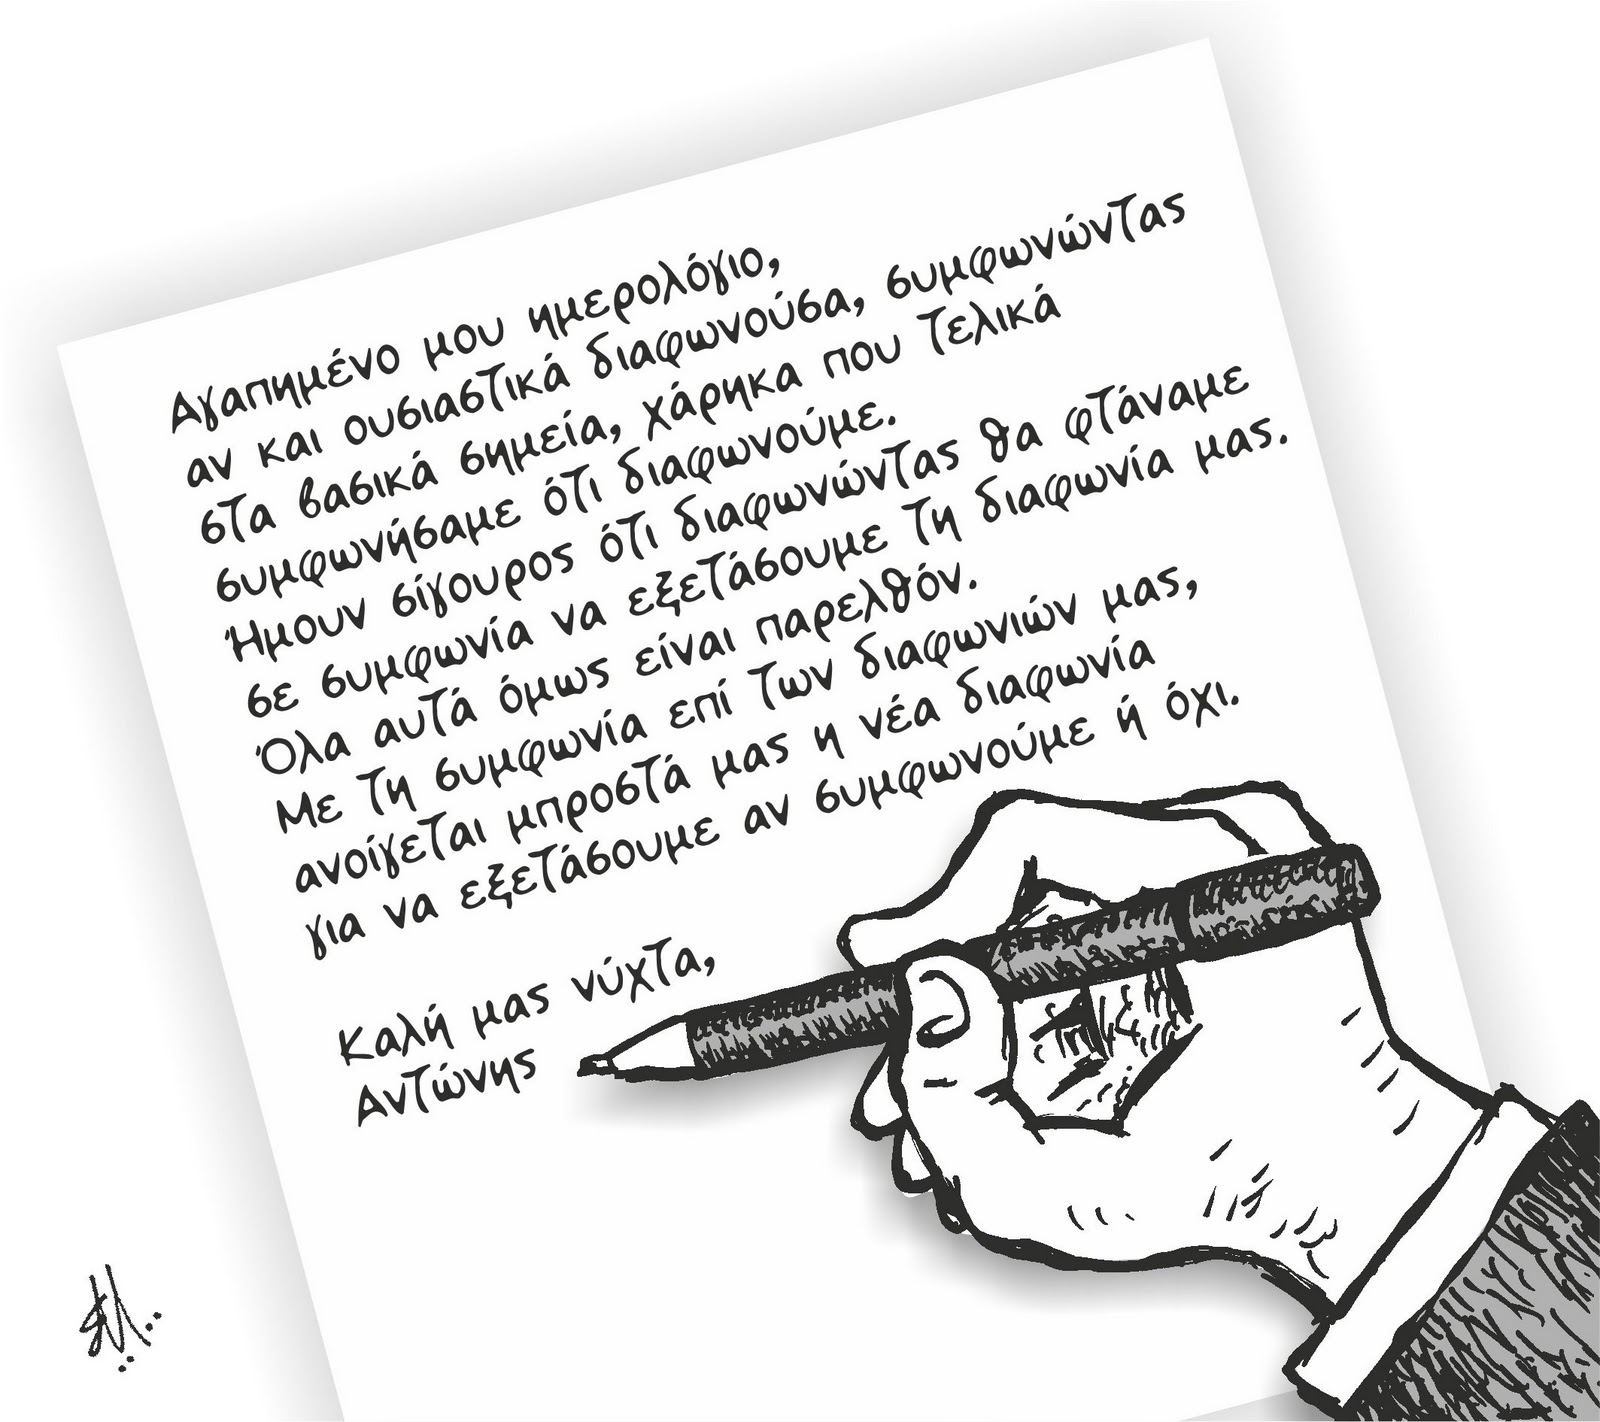 Αγαπημένο μου ημερολόγιο,
αν και ουσιαστικά διαφωνούσα, συμφωνώντας
στα βασικά σημεία, χάρηκα που τελικά
συμφωνήσαμε ότι διαφωνούμε.
Ήμουν σίγουρος ότι διαφωνώντας θα φτάναμε
σε συμφωνία να εξετάσουμε τη διαφωνία μας.
Όλα αυτά όμως είναι παρελθόν.
Με τη συμφωνία επί των διαφωνιών μας,
ανοίγεται μπροστά μας η νέα διαφωνία
για να εξετάσουμε αν συμφωνούμε ή όχι.
Καλή μας νύχτα,
Αντώνης